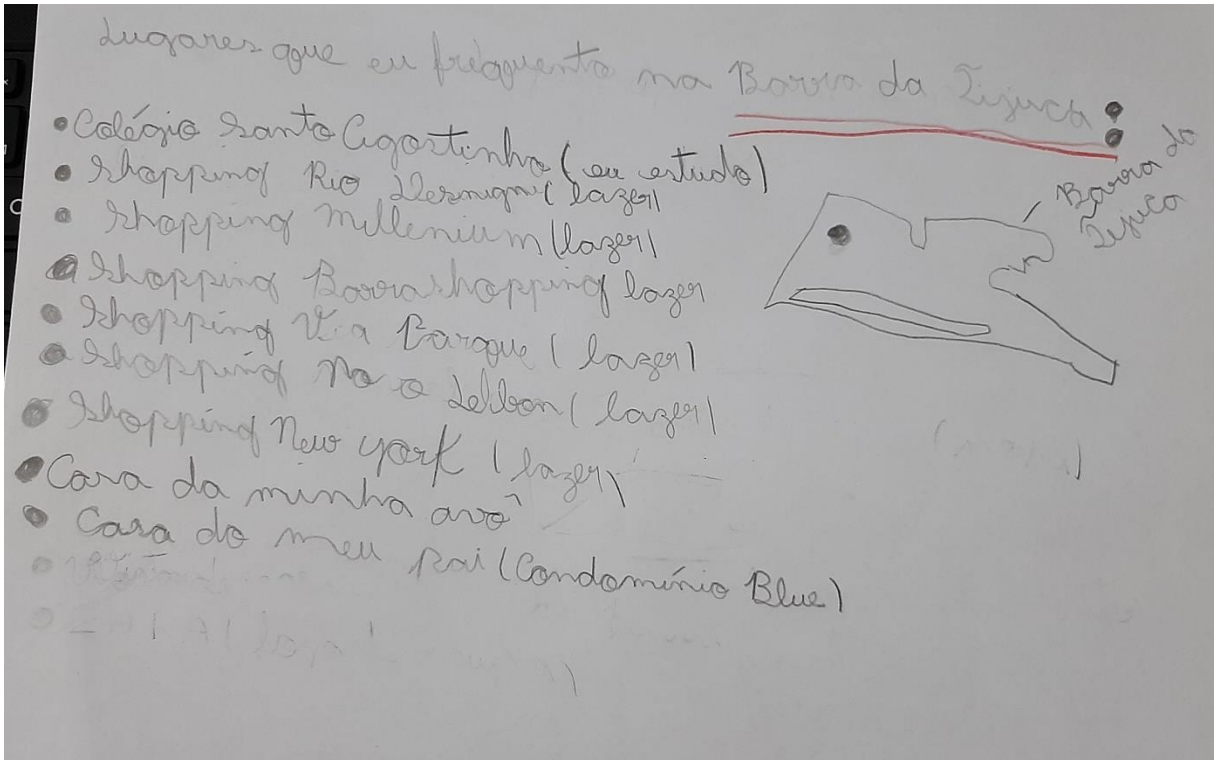 Lugares que eu frequento na Barra da Tijuca:
• Colégio Santo Agostinho (eu estudo)
• Shopping Rio (lazer)
• Shopping Millenium (lazer)
• Shopping Barrashopping lazer
• Shopping Via Parque (lazer)
• Shopping (lazer)
• Shopping New york (lazer)
• Casa da minha avô
• Casa do meu pai (Condomínio Blue)
Barra da
Tijuca